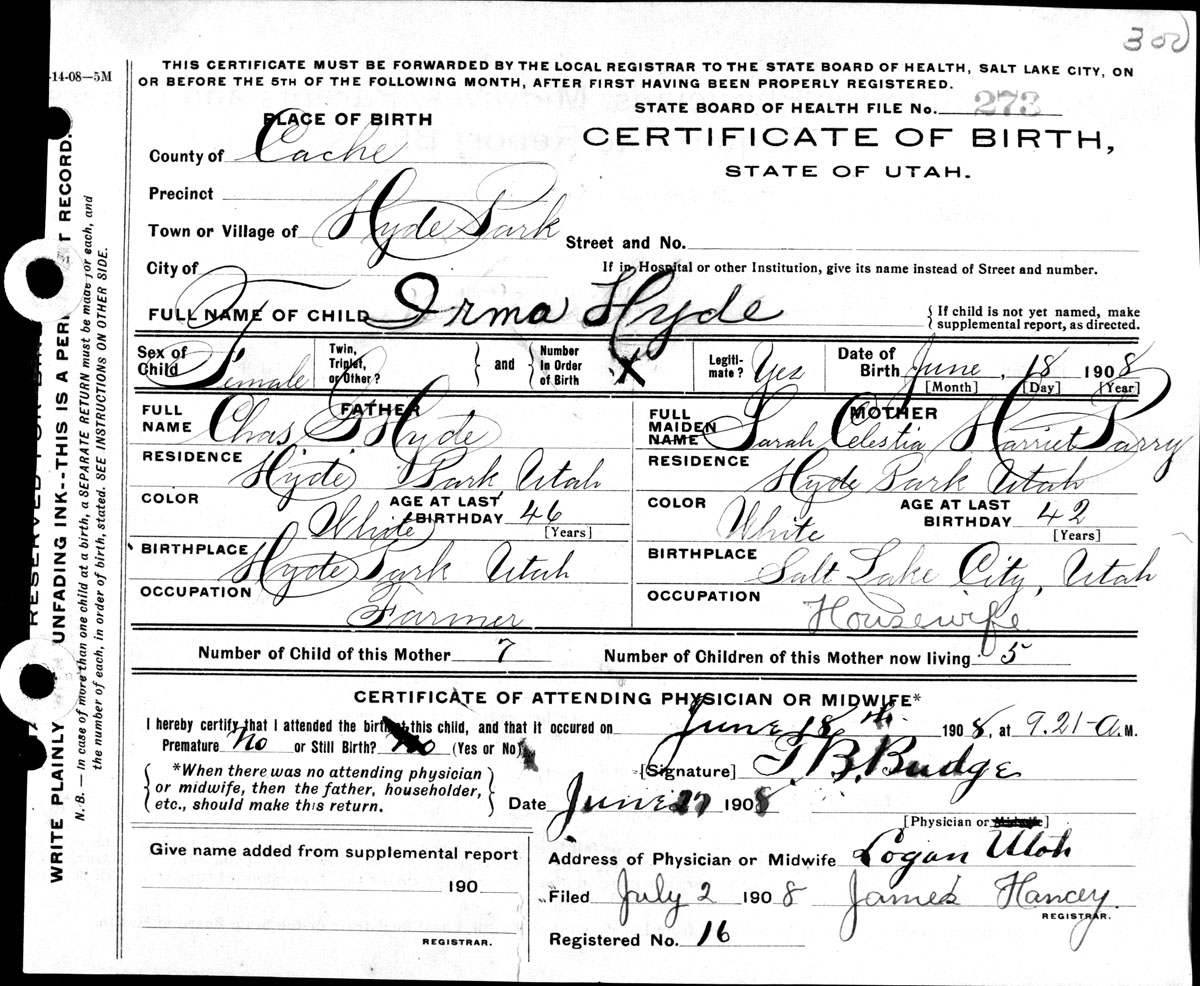 302
-14-08—5M
THIS CERTIFICATE MUST BE FORWARDED BY THE LOCAL REGISTRAR TO THE STATE BOARD OF HEALTH, SALT LAKE CITY, ON
OR BEFORE THE 5TH OF THE FOLLOWING MONTH, AFTER FIRST HAVING BEEN PROPERLY REGISTERED.
STATE BOARD OF HEALTH FILE No. 273
PLACE OF BIRTH
CERTIFICATE OF BIRTH,
STATE OF UTAH.
County of Cache
Precinct
Town or Village of Hyde Park
Street and No.
City of
If in Hospital or other Institution, give its name instead of Street and number.
FULL NAME OF CHILD Irma Hyde
{If child is not yet named, make
supplemental report, as directed.
Sex of Child Female
Twin, Triplet, or Other? } and { Number In Order of Birth X
Legiti-mate? Yes
Date of Birth June, 18 1908
[Month] [Day] [Year]
FATHER
FULL NAME Chas G Hyde
RESIDENCE Hyde Park Utah
COLOR White
AGE AT LAST BIRTHDAY 46
[Years]
BIRTHPLACE Hyde Park Utah
OCCUPATION Farmer
MOTHER
FULL MAIDEN NAME Sarah Celestia Harriet Parry
RESIDENCE Hyde Park Utah
COLOR White
AGE AT LAST BIRTHDAY 42
[Years]
BIRTHPLACE Salt Lake City, Utah
OCCUPATION Housewife
Number of Child of this Mother 7
Number of Children of this Mother now living 5
CERTIFICATE OF ATTENDING PHYSICIAN OR MIDWIFE*
I hereby certify that I attended the birth of this child, and that it occured on June 18th. 1908, at 9.21-A.M.
Premature No or Still Birth? No (Yes or No)
{*When there was no attending physician
or midwife, then the father, householder,
etc., should make this return.}
[Signature] T. B. Budge
Date June 27 1908
[Physician or Midwife]
Address of Physician or Midwife Logan Utah
Give name added from supplemental report
190
REGISTRAR.
Filed July 2 1908 James Hancey.
REGISTRAR.
Registered No. 16
RESERVED FOR
WRITE PLAINLY UNFADING INK--THIS IS A RECORD.
N. B. — In case of more than one child at a birth, a SEPARATE RETURN must be made for each, and
the number of each, in order of birth, stated. SEE INSTRUCTIONS ON OTHER SIDE.